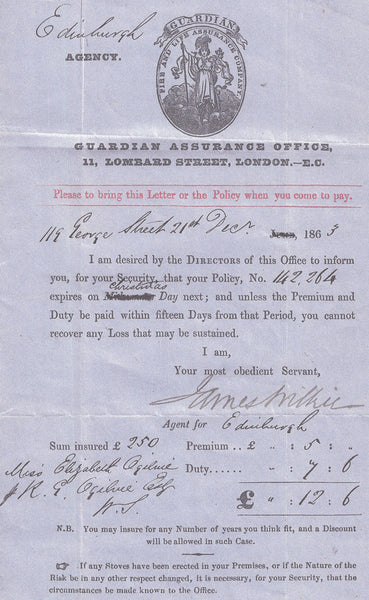 Edinburgh
AGENCY.
GUARDIAN
FIRE AND LIFE ASSURANCE COMPANY
GUARDIAN ASSURANCE OFFICE,
11, LOMBARD STREET, LONDON.—E.C.
Please to bring this Letter or the Policy when you come to pay.
119 George Street 21st Decr. 1863
I am desired by the DIRECTORS of this Office to inform
you, for your Security, that your Policy, No. 142,264
Christmas
expires on Day next; and unless the Premium and
Duty be paid within fifteen Days from that Period, you cannot
recover any Loss that may be sustained.
I am,
Your most obedient Servant,
James Wilkie
Agent for Edinburgh
Sum insured £ 250 Premium .. £ " : 5 : "
Miss Elizabeth Ogilvie Duty...... " : 7 : 6
p R. E. Ogilvie Esq
W.S. £ " : 12 : 6
N.B. You may insure for any Number of years you think fit, and a Discount
will be allowed in such Case.
☞ If any Stoves have been erected in your Premises, or if the Nature of the
Risk be in any other respect changed, it is necessary, for your Security, that the
circumstances be made known to the Office.